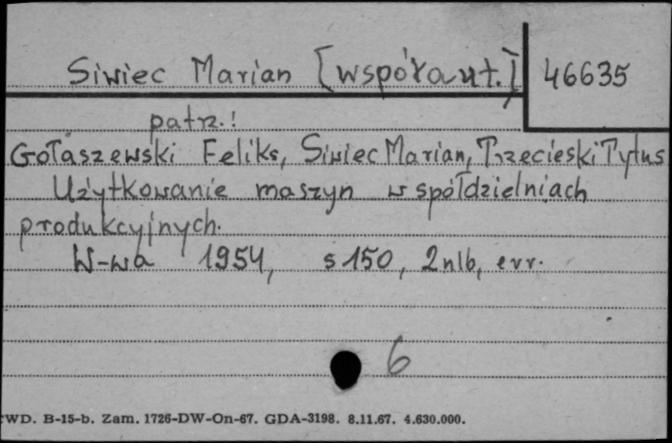 Siwiec Marian [współaut.] 46635
patrz.!
Gołaszewski Feliks, Siwiec Marian, Trzecieski Tytus
Użytkowanie maszyn w spółdzielniach
produkcyjnych.
W-wa 1954, s 150, 2 nlb, err.
6
WD. B-15-b. Zam. 1726-DW-On-67. GDA-3198. 8.11.67. 4.630.000.